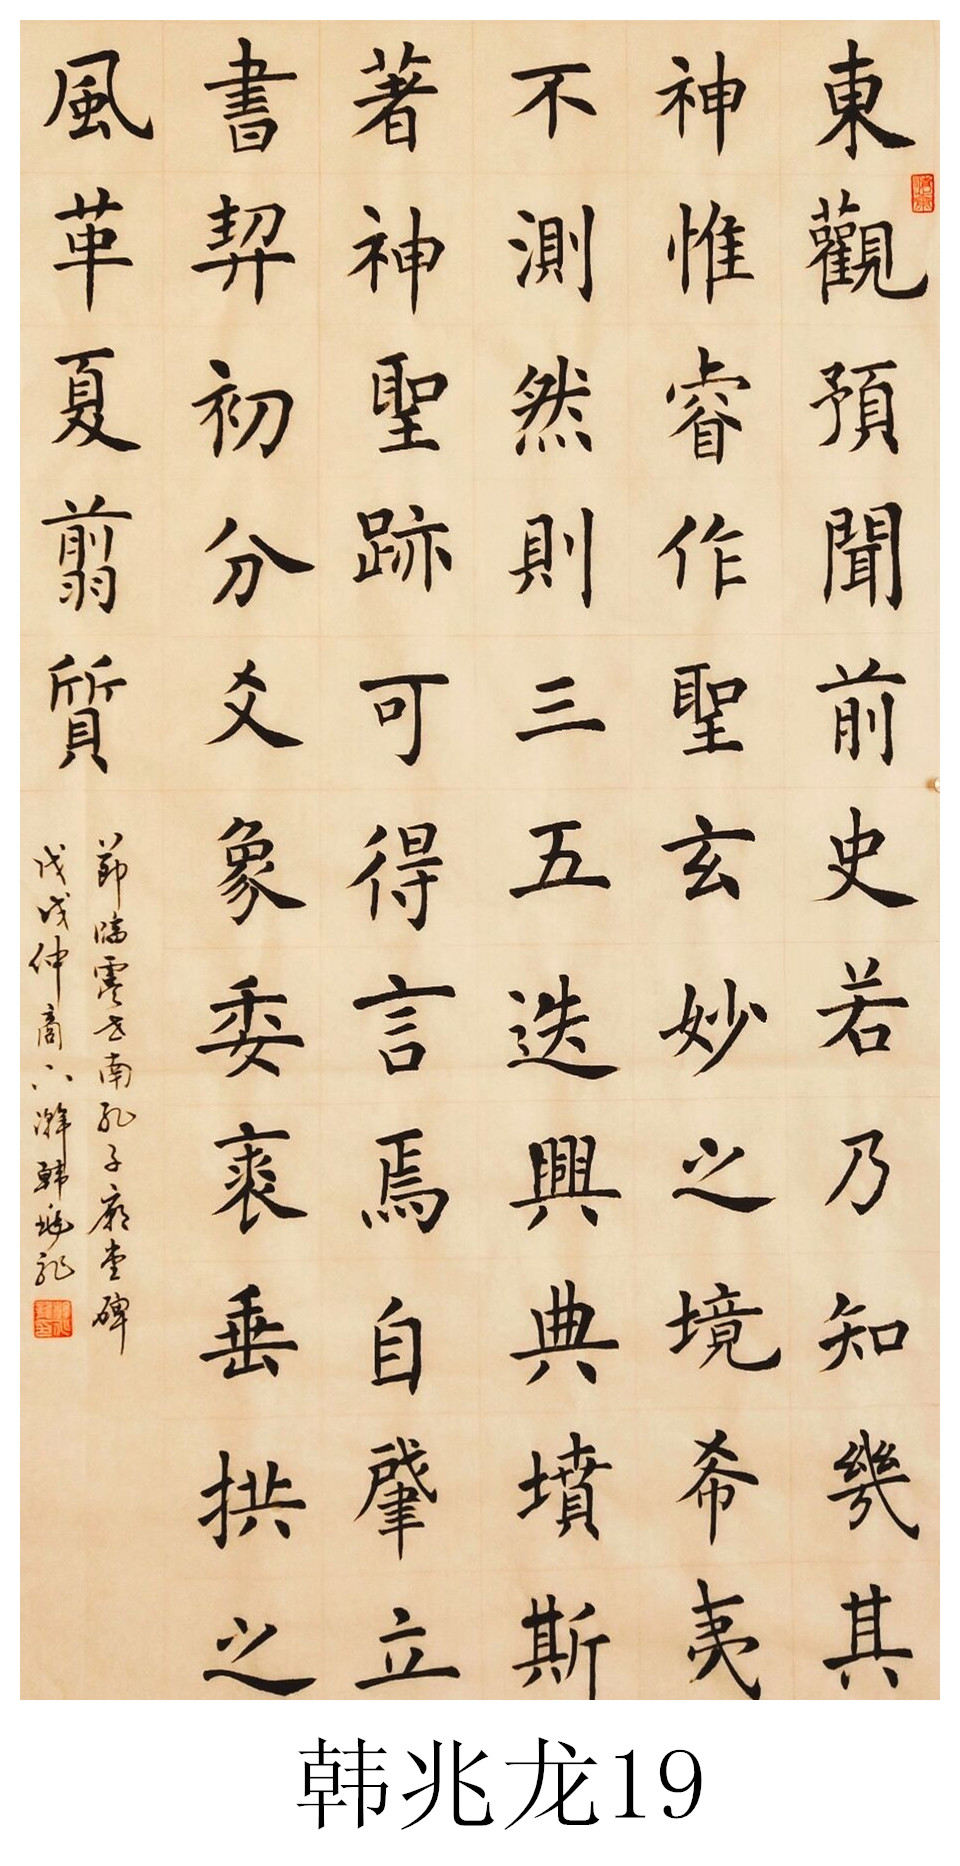 東觀預聞前史若乃知幾其
神惟睿作聖玄妙之境希夷
不測然則三五迭興典墳斯
著神聖跡可得言焉自肇立
書契初分爻象委裘垂拱之
風革夏翦質
節臨虞世南孔子廟堂碑
戊戌仲商 瀚韩兆龙
韩兆龙19